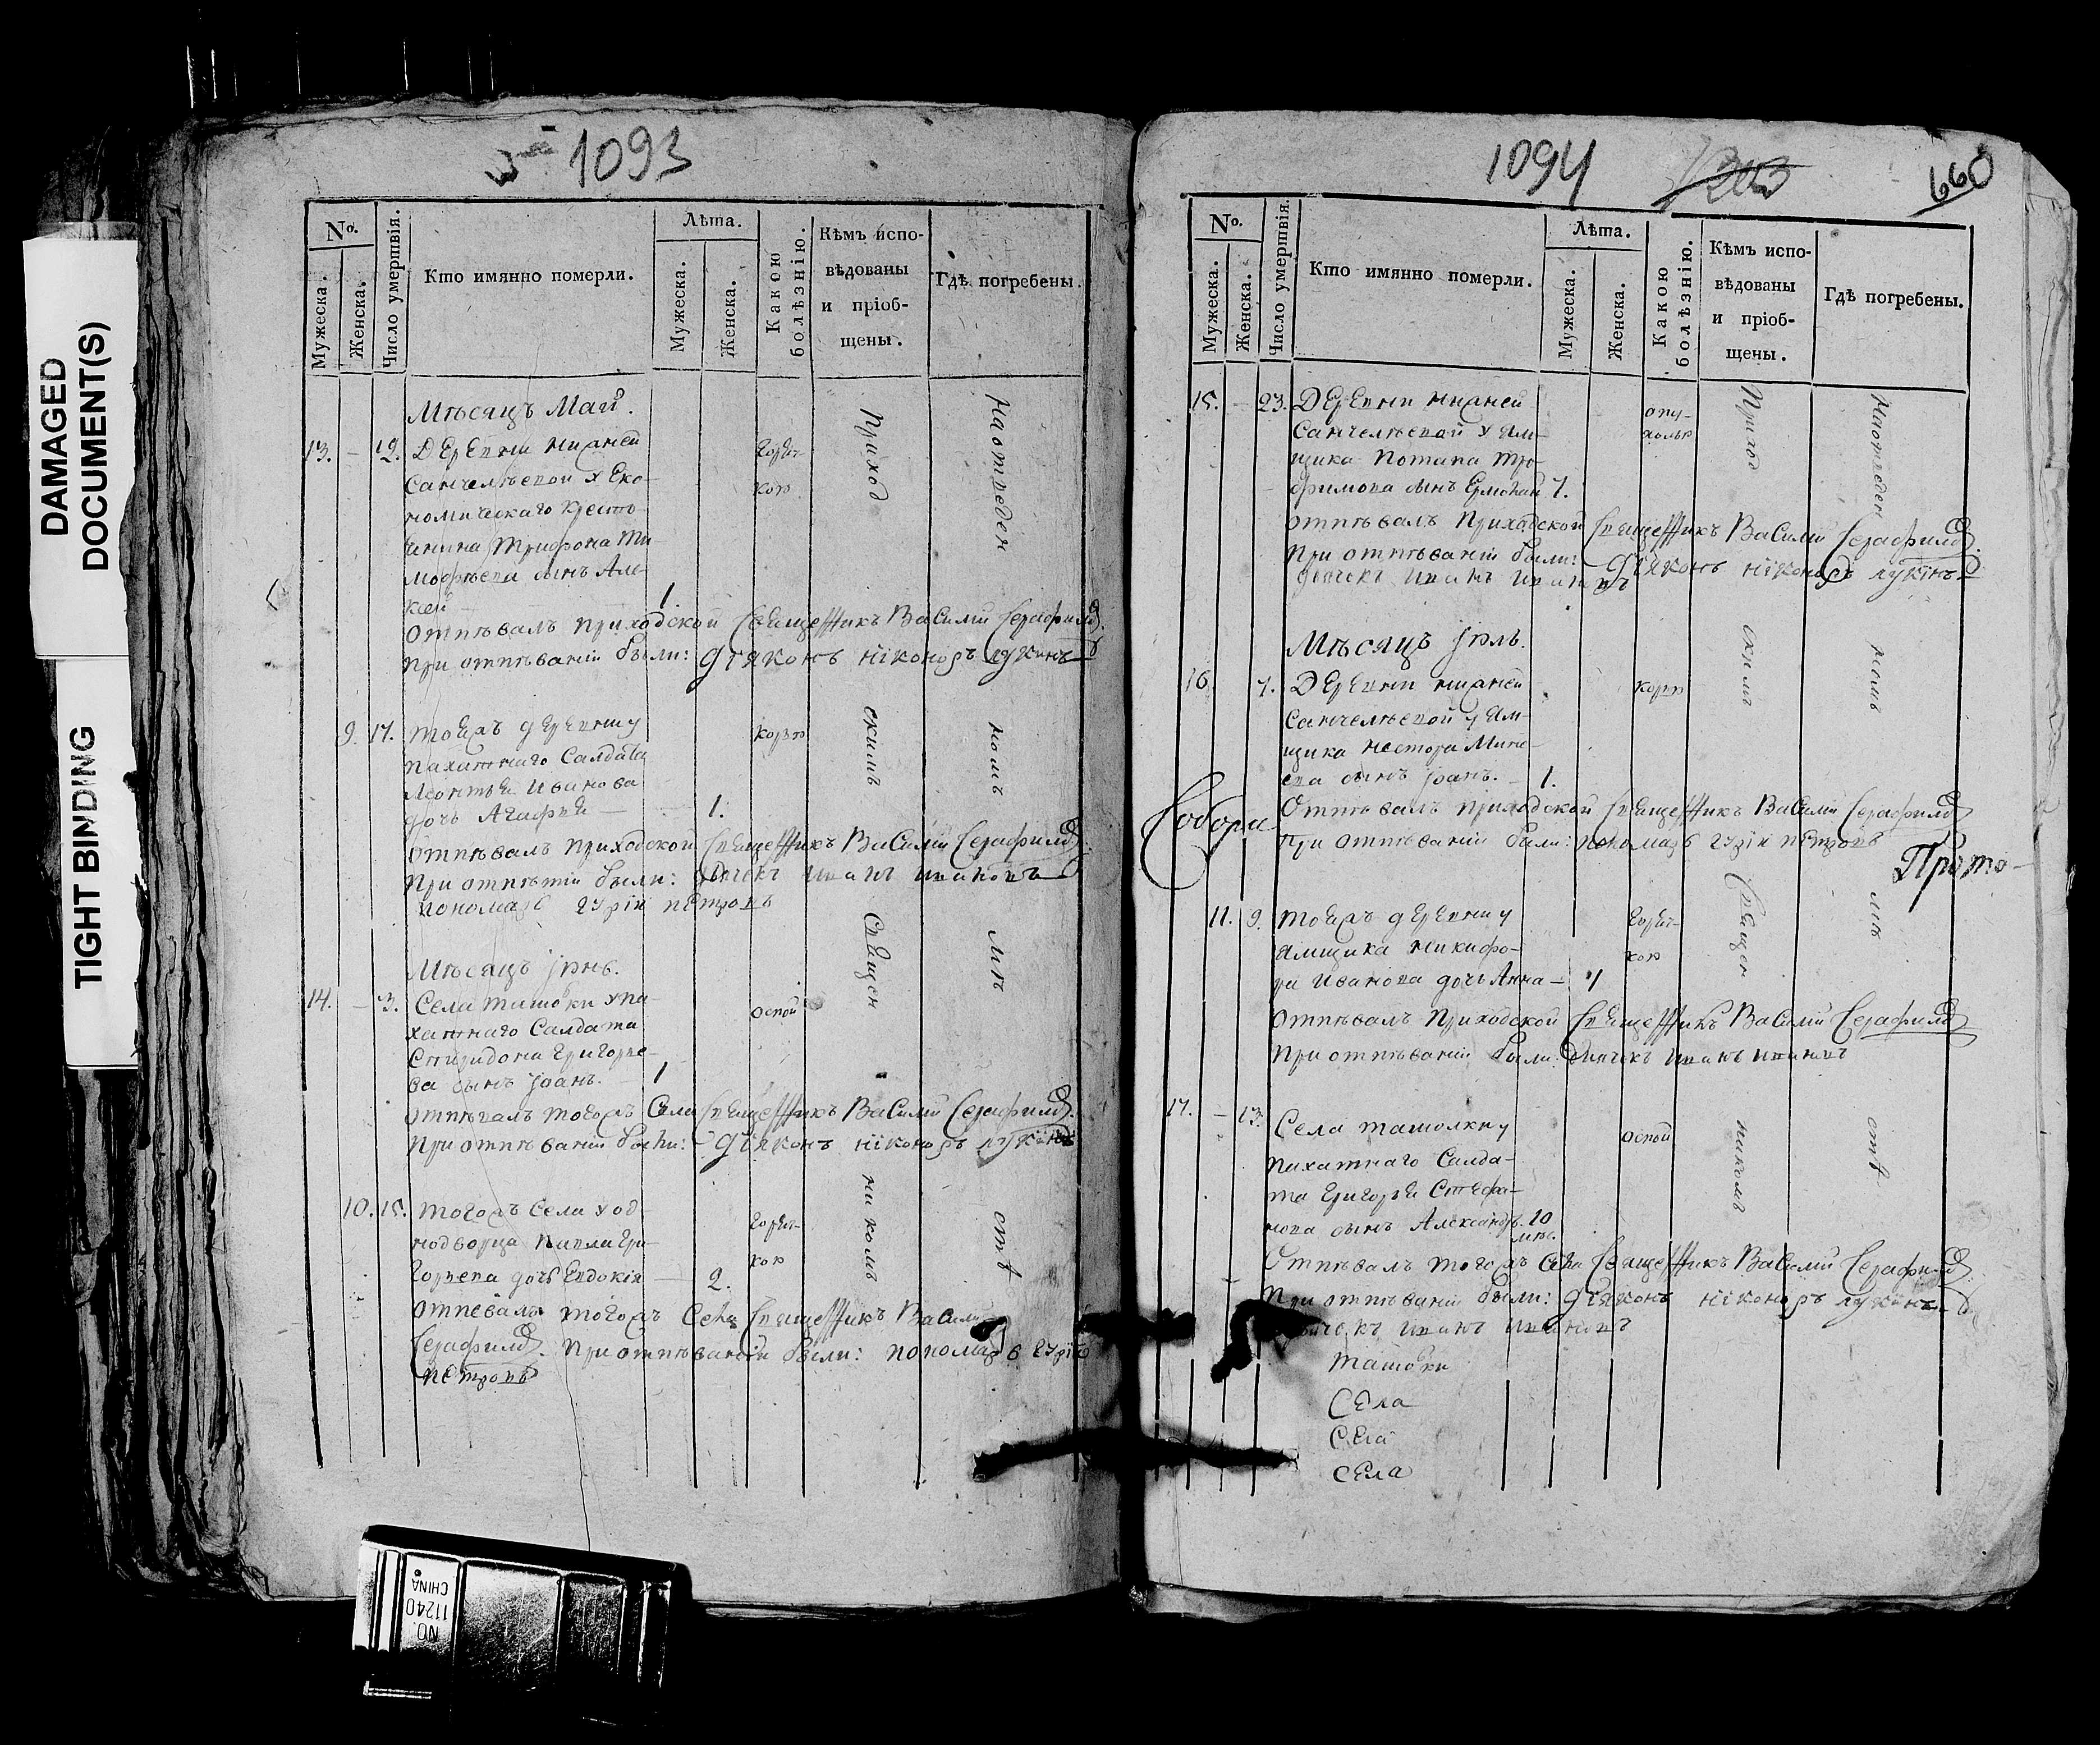 DAMAGED
DOCUMENT(S)
TIGHT BINDING
1093
№.
Мужеска.
Женска.
Число умертвія.
Кто имянно померли.
Лѣта.
Мужеска.
Женска.
Какою
болѣзнію.
Кѣмъ испо-
вѣдованы
и пріоб-
щены.
Гдѣ погребены.
Мѣсяцъ Маій.
13. - 12. Деревни нижней
Санчелѣевой у Еко-
номическаго крестья-
нина Трифона Ти-
мофѣева сынъ Але-
ксей 1.
горяч-
кою
Отпѣвалъ приходской священникъ Василій Серафимовъ.
При отпѣваніи были: діяконъ Никоноръ Лукинъ
9. 17. тояжъ деревни у
пахатнаго Салдата
Леонтья Иванова
дочь Агафья 1.
корью
Отпѣвалъ приходской священникъ Василій Серафимовъ.
При отпѣтіи были: дьячекъ Иванъ Ивановъ
пономарь Гурій Петровъ
Мѣсяцъ Іюнь.
14. - 3. Села Ташолки у па-
хатнаго Салдата
Спиридона Григорье-
ва сынъ Іоанъ. 1
оспой
отпѣвалъ тогожъ Села священникъ Василій Серафимовъ.
При отпѣваніи были: діяконъ Никоноръ Лукинъ
10. 15. тогожъ Села у од-
нодворца Павла Гри-
горьева дочь Евдокія 2.
горяч-
кою
отпевалъ тогожъ Села священникъ Василій
Серафимовъ. При отпѣваніи были: пономарь Гурій
Петровъ
Приход
скимъ
Священ
никомъ
На отведен
номъ
мѣ
стѣ
NO.
11240
CHINA
1094
660
№.
Мужеска.
Женска.
Число умертвія.
Кто имянно померли.
Лѣта.
Мужеска.
Женска.
Какою
болѣзнію.
Кѣмъ испо-
вѣдованы
и пріоб-
щены.
Гдѣ погребены.
15. - 23. Деревни нижней
Санчелѣевой у Ям-
щика Потапа Тро-
фимова сынъ Ермолай 7.
опу-
холью
отпѣвалъ приходской священникъ Василій Серафимовъ.
При отпѣваніи были: діяконъ Никоноръ Лукинъ
дьячекъ Иванъ Ивановъ
Мѣсяцъ Іюль.
16. 7. Деревни нижней
Санчелѣевой у Ям-
щика Нестора Мине-
ева сынъ Іоанъ. 1.
корью
Отпѣвалъ приходской священникъ Василій Серафимовъ
При отпѣваніи были: пономарь Гурій Петровъ
Собора
Прото-
11. 9. тояжъ деревни у
Ямщика Никифо-
ра Иванова дочь Анна 4
горяч-
кою
отпѣвалъ приходской священникъ Василій Серафимовъ
При отпѣваніи были: дьячекъ Иванъ Ивановъ
17. - 13. Села Ташолки у
пахатнаго Салда-
та Григорья Стефа-
нова сынъ Александръ. 10
мѣс.
оспой
Отпѣвалъ тогожъ села священникъ Василій Серафимовъ.
При отпѣваніи были: діяконъ Никоноръ Лукинъ
дьячекъ Иванъ Ивановъ
Приход
скимъ
Священ
никомъ
На отведен
номъ
мѣ
стѣ
Ташолки
Села
Села
Села